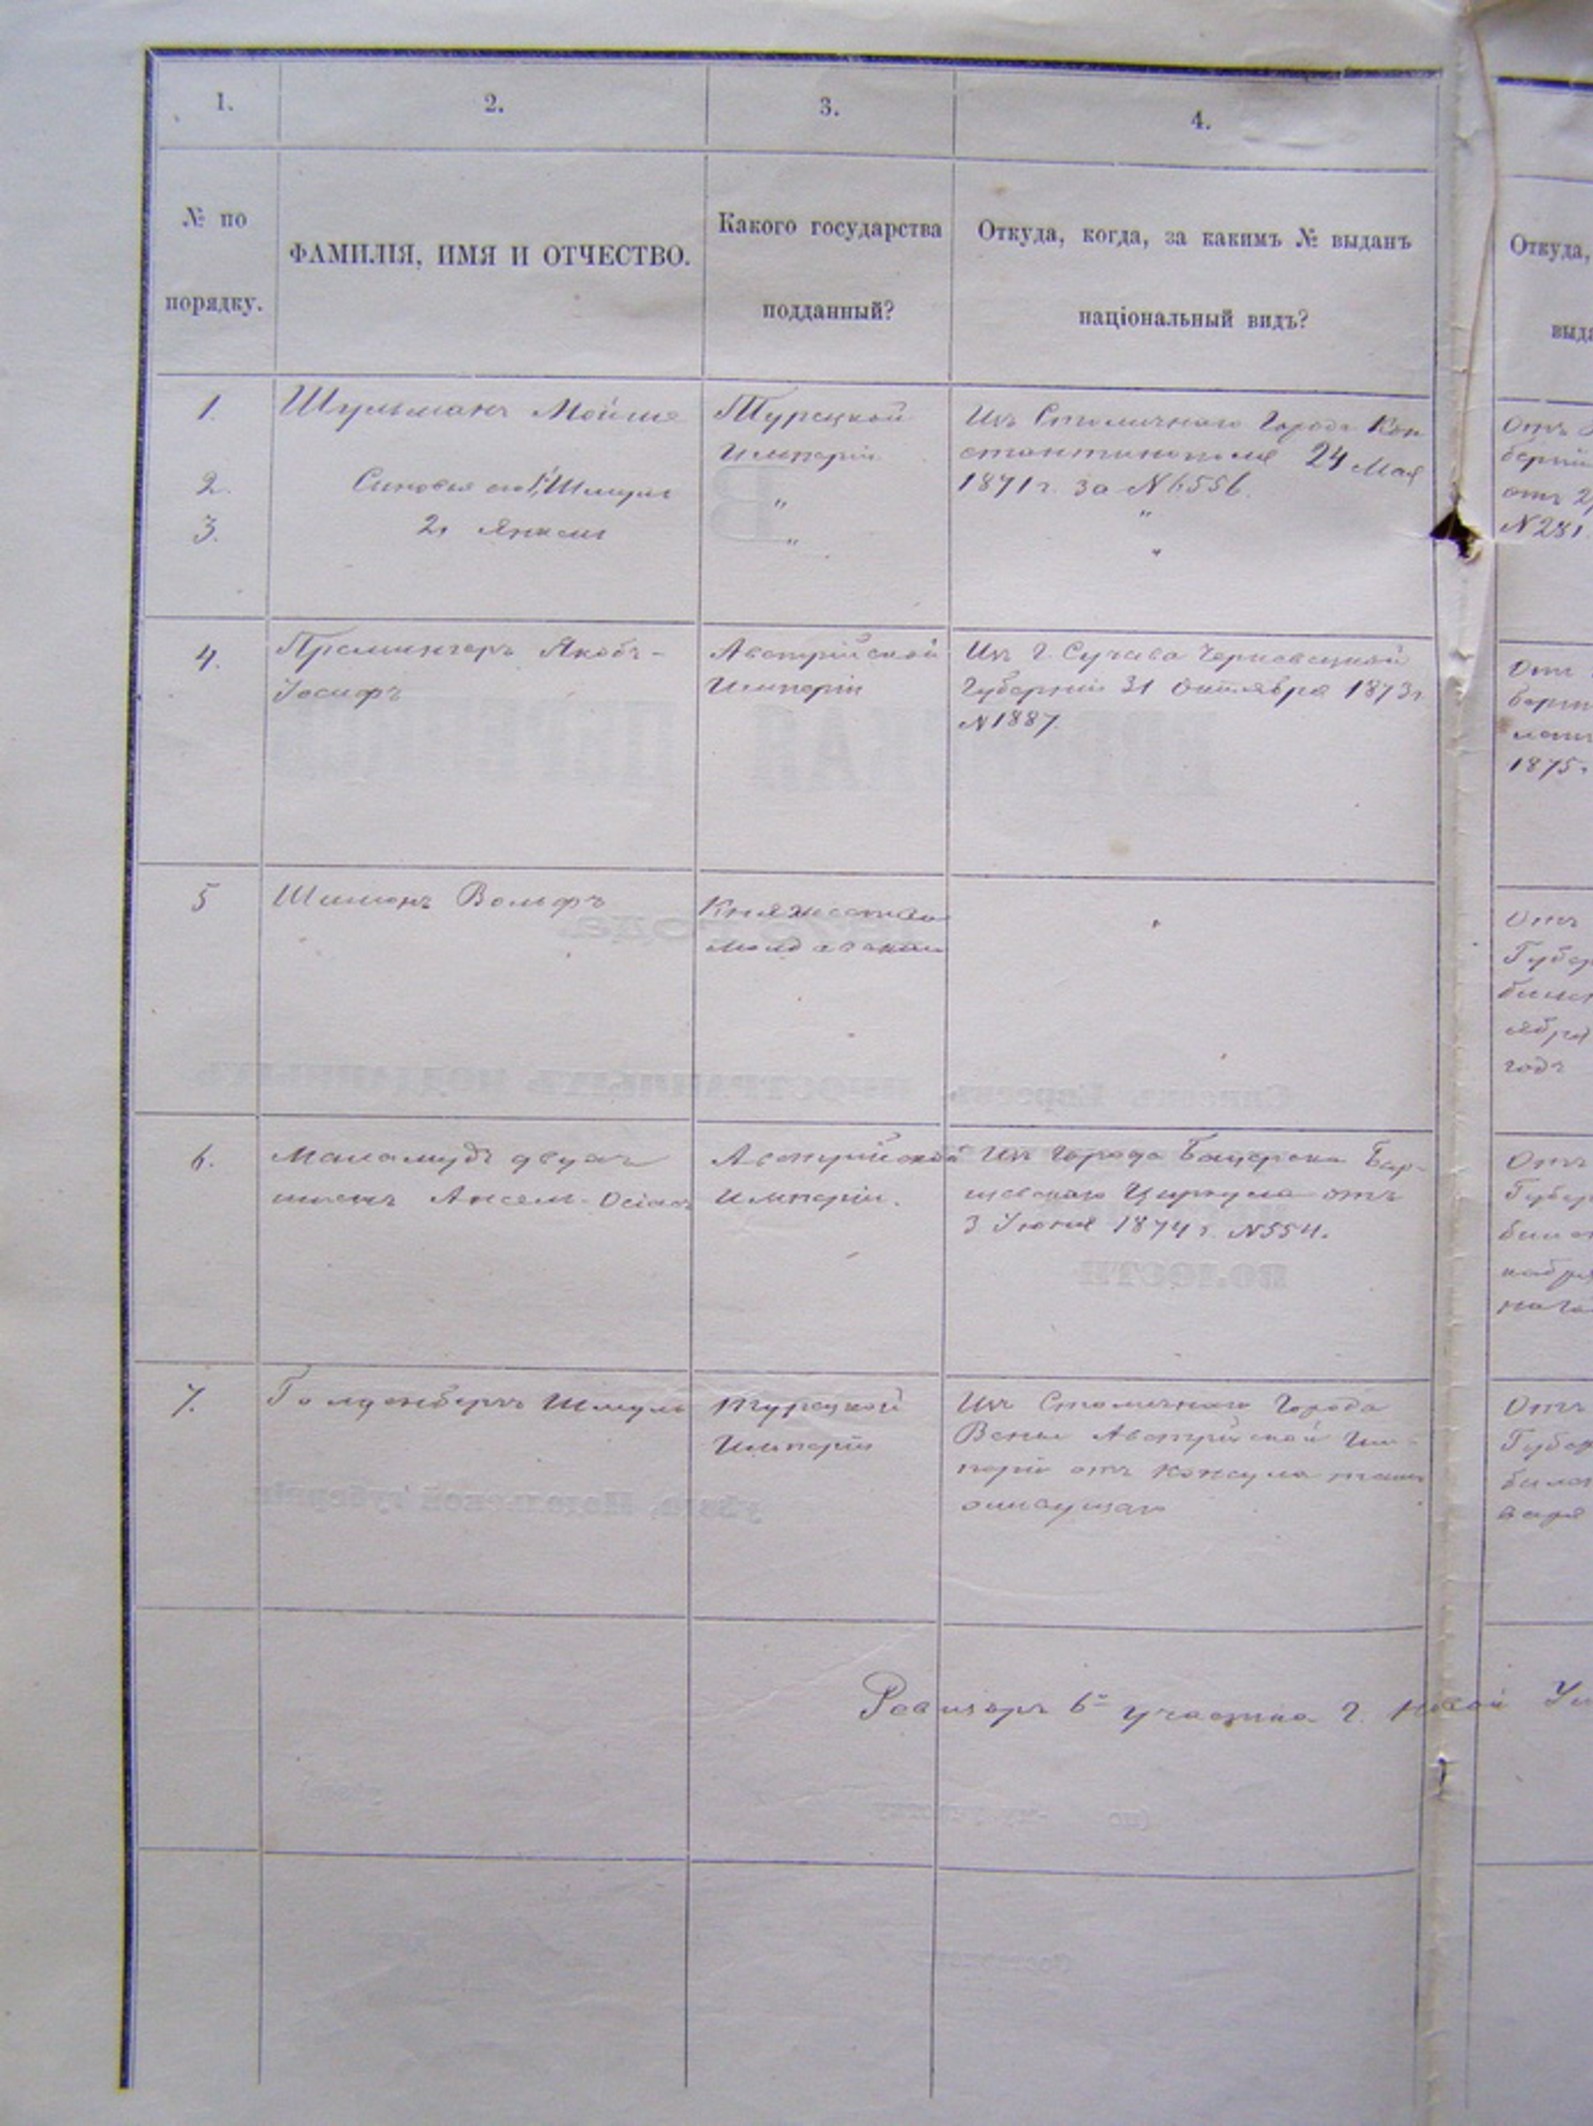 1.
2.
3.
4.
№ по
порядку.
ФАМИЛІЯ, ИМЯ И ОТЧЕСТВО.
Какого государства
подданный?
Откуда, когда, за какимъ № выданъ
національный видъ?
Откуда,
выда
1. Шульманъ Мойше
Турецкой
Имперіи
Изъ Столичнаго Города Кон
стантинополя 24 Мая
1871 г. за №6556.
2. Синовья его 1, Шмуль
"
"
3. 2, Янкель
"
"
Отъ
берніи
отъ
№281.
4. Премингеръ Якобъ-
Іосифъ
Австрійской
Имперіи
Изъ г. Сучава Черновецкой
Губерніи 31 Октября 1873 г.
№1887.
1875
5 Шимонъ Вольфъ
Княжества
Молдавскаго
"
Отъ
Губер
билет
ября
годъ
6. Маламудъ
Ансель-Осіасъ
Австрійской
Имперіи.
Изъ Города
Циркула отъ
3 Іюня 1874 г. №554.
Отъ
Губер
7. Голденбергъ Шмуль
Турецкой
Имперіи
Изъ Столичнаго Города
Вены Австрійской Им-
періи отъ Консула тамъ
Отъ
Губер
билет
Ревизоръ 6 участка г. Новой